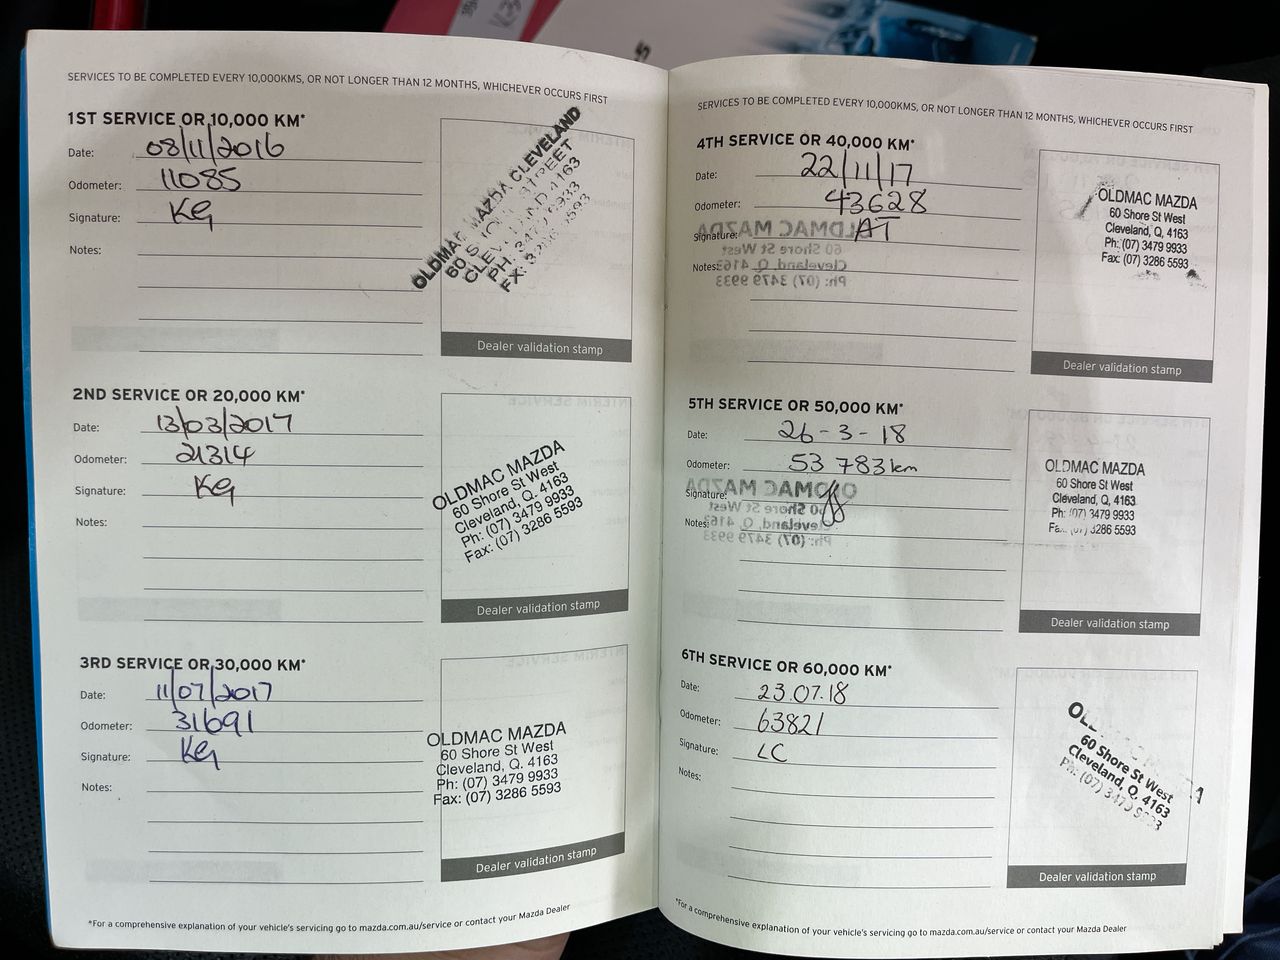 SERVICES TO BE COMPLETED EVERY 10,000KMS, OR NOT LONGER THAN 12 MONTHS, WHICHEVER OCCURS FIRST
1ST SERVICE OR 10,000 KM*
Date: 08/11/2016
Odometer: 11085
Signature: KG
Notes:
OLDMAC MAZDA CLEVELAND
60 STREET
CLEVELAND 4163
PH: 3479 9933
FX: 3286 5593
Dealer validation stamp
2ND SERVICE OR 20,000 KM*
Date: 13/03/2017
Odometer: 21314
Signature: KG
Notes:
OLDMAC MAZDA
60 Shore St West
Cleveland, Q. 4163
Ph: (07) 3479 9933
Fax: (07) 3286 5593
Dealer validation stamp
3RD SERVICE OR 30,000 KM*
Date: 11/07/2017
Odometer: 31691
Signature: KG
Notes:
OLDMAC MAZDA
60 Shore St West
Cleveland, Q. 4163
Ph: (07) 3479 9933
Fax: (07) 3286 5593
Dealer validation stamp
*For a comprehensive explanation of your vehicle's servicing go to mazda.com.au/service or contact your Mazda Dealer
SERVICES TO BE COMPLETED EVERY 10,000KMS, OR NOT LONGER THAN 12 MONTHS, WHICHEVER OCCURS FIRST
4TH SERVICE OR 40,000 KM*
Date: 22/11/17
Odometer: 43628
Signature: AT
Notes:
OLDMAC MAZDA
60 Shore St West
Cleveland, Q. 4163
Ph: (07) 3479 9933
OLDMAC MAZDA
60 Shore St West
Cleveland, Q. 4163
Ph: (07) 3479 9933
Fax: (07) 3286 5593
Dealer validation stamp
5TH SERVICE OR 50,000 KM*
Date: 26-3-18
Odometer: 53 783 km
Signature:
Notes:
OLDMAC MAZDA
60 Shore St West
Cleveland, Q. 4163
Ph: (07) 3479 9933
OLDMAC MAZDA
60 Shore St West
Cleveland, Q. 4163
Ph: (07) 3479 9933
Fax: (07) 3286 5593
Dealer validation stamp
6TH SERVICE OR 60,000 KM*
Date: 23.07.18
Odometer: 63821
Signature: LC
Notes:
60 Shore St West
Cleveland, Q. 4163
Ph: (07) 3479 9933
Dealer validation stamp
*For a comprehensive explanation of your vehicle's servicing go to mazda.com.au/service or contact your Mazda Dealer